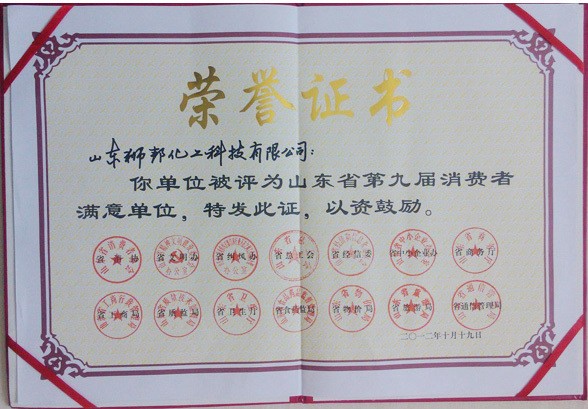 荣誉证书
山东狮邦化工科技有限公司：
你单位被评为山东省第九届消费者
满意单位，特发此证，以资鼓励。
省消协 省文明办 省纠风办 省总工会 省经信委 省中小企业办 省商务厅
省工商局 省质监局 省卫生厅 省食药监局 省物价局 省旅游局 省通信管理局
二〇一二年十月十九日